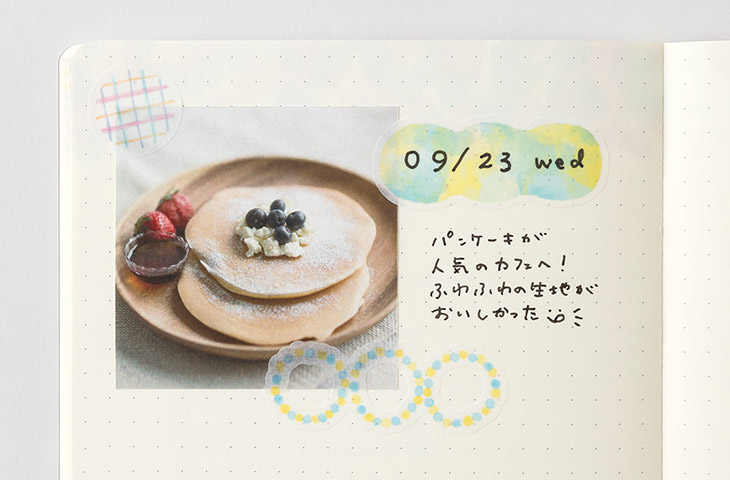 09/23 wed
パンケーキが
人気のカフェへ!
ふわふわの生地が
おいしかった